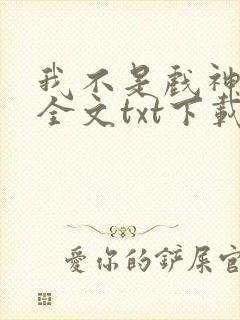 我不是戲神
全文txt下載
愛你的鏟屎官